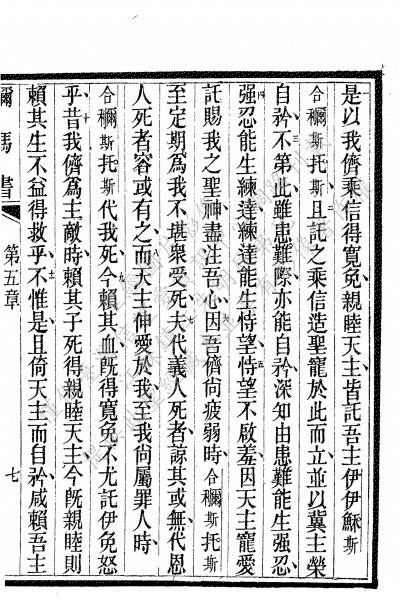 是以我儕乘信得寬免親睦天主皆託吾主伊伊穌斯
合穪斯托斯且託之乘信造聖寵於此而立並以冀主榮
自矜不第此雖患難際亦能自矜深知由患難能生强忍
强忍能生練達練達能生恃望恃望不啟羞因天主寵愛
託賜我之聖神盡注吾心因吾儕尙疲弱時合穪斯托斯
至定期爲我不堪衆受死夫代義人死者諒其或無代恩
人死者容或有之而天主伸愛於我至我尙屬罪人時
合穪斯托斯代我死今賴其血旣得寬免不尤託伊免怒
乎昔我儕爲主敵時賴其子死得親睦天主今旣親睦則
賴其生不益得救乎不惟是且倚天主而自矜咸賴吾主
爾瑪書
第五章
七